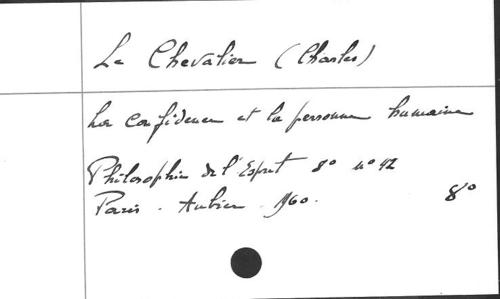 Le Chevalier (Charles)
La confidence et la personne humaine
Philosophie de l'Esprit 8° n° 42
Paris - Aubier - 1960.
8°